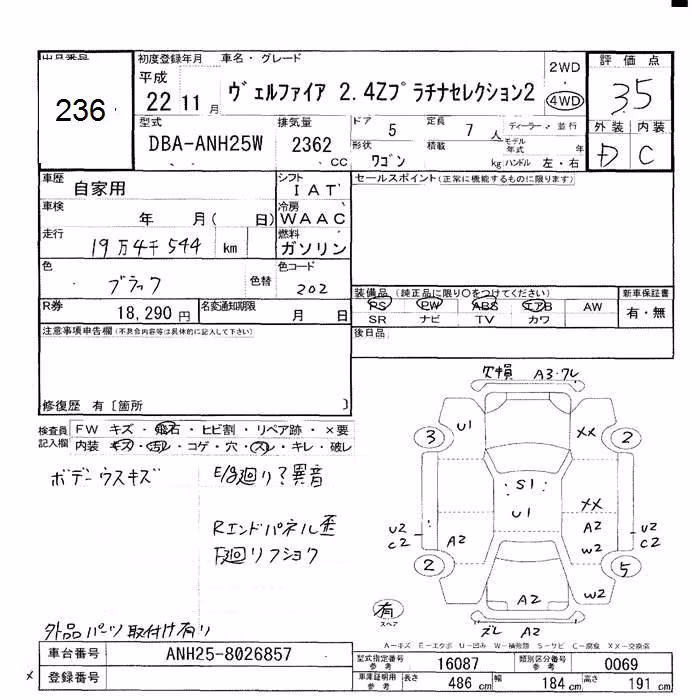 出品番号
236
初度登録年月
平成
22 11 月
車名・グレード
ヴェルファイア 2.4Zプラチナセレクション2
2WD
・
4WD
評価点
3.5
外装 内装
D C
型式
DBA-ANH25W
排気量
2362
CC
ドア 5
形状 ワゴン
定員 7 人
積載 kg
ディーラー・並行
モデル年式 年
ハンドル 左・右
車歴 自家用
車検 年 月( 日)
走行 19万4千544 km
色 ブラック 色替
シフト IAT
冷房 WAAC
燃料 ガソリン
色コード 202
R券 18,290 円
名変通知期限 月 日
セールスポイント(正常に機能するものに限ります)
装備品(純正品に限り〇をつけてください)
PS PW ABS エアB AW
SR ナビ TV カワ
新車保証書
有・無
後日品
注意事項申告欄(不具合内容等は具体的に記入して下さい)
修復歴 有〔箇所 〕
検査員記入欄
FW キズ・飛石・ヒビ割・リペア跡・×要
内装 キズ・汚レ・コゲ・穴・スレ・キレ・破レ
ボデーウスキズ
E/g廻り?異音
Rエンドパネル歪
下廻リフショク
外品パーツ取付け有り
欠損 A3・ワレ
U1
XX
3
2
S1
U1
XX
U2
C2
A2
A2
W2
U2
C2
2
5
A2
W2
有
スペア
ズレ A2
A-キズ E-エクボ U-凹み W-補修跡 S-サビ C-腐食 XX-交換済
車台番号 ANH25-8026857
登録番号
×
型式指定番号 参考 16087
類別区分番号 参考 0069
車庫証明用 参考 長さ 486 cm 幅 184 cm 高さ 191 cm